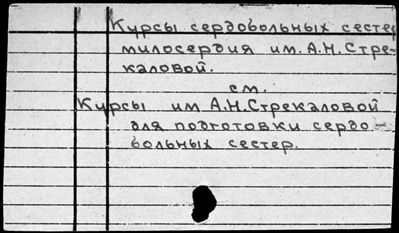 Курсы сердобольных сестер
милосердия им. А.Н.Стре-
каловой.
см.
Курсы им А.Н.Стрекаловой
для подготовки сердо-
больных сестер.